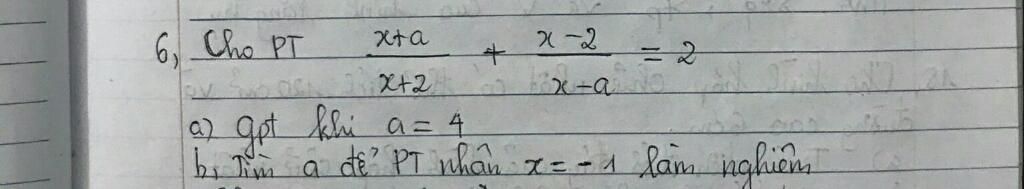 6, Cho PT (x+a)/(x+2) + (x-2)/(x-a) = 2
a) gpt khi a = 4
b, Tìm a để PT nhân x = -1 làm nghiêm